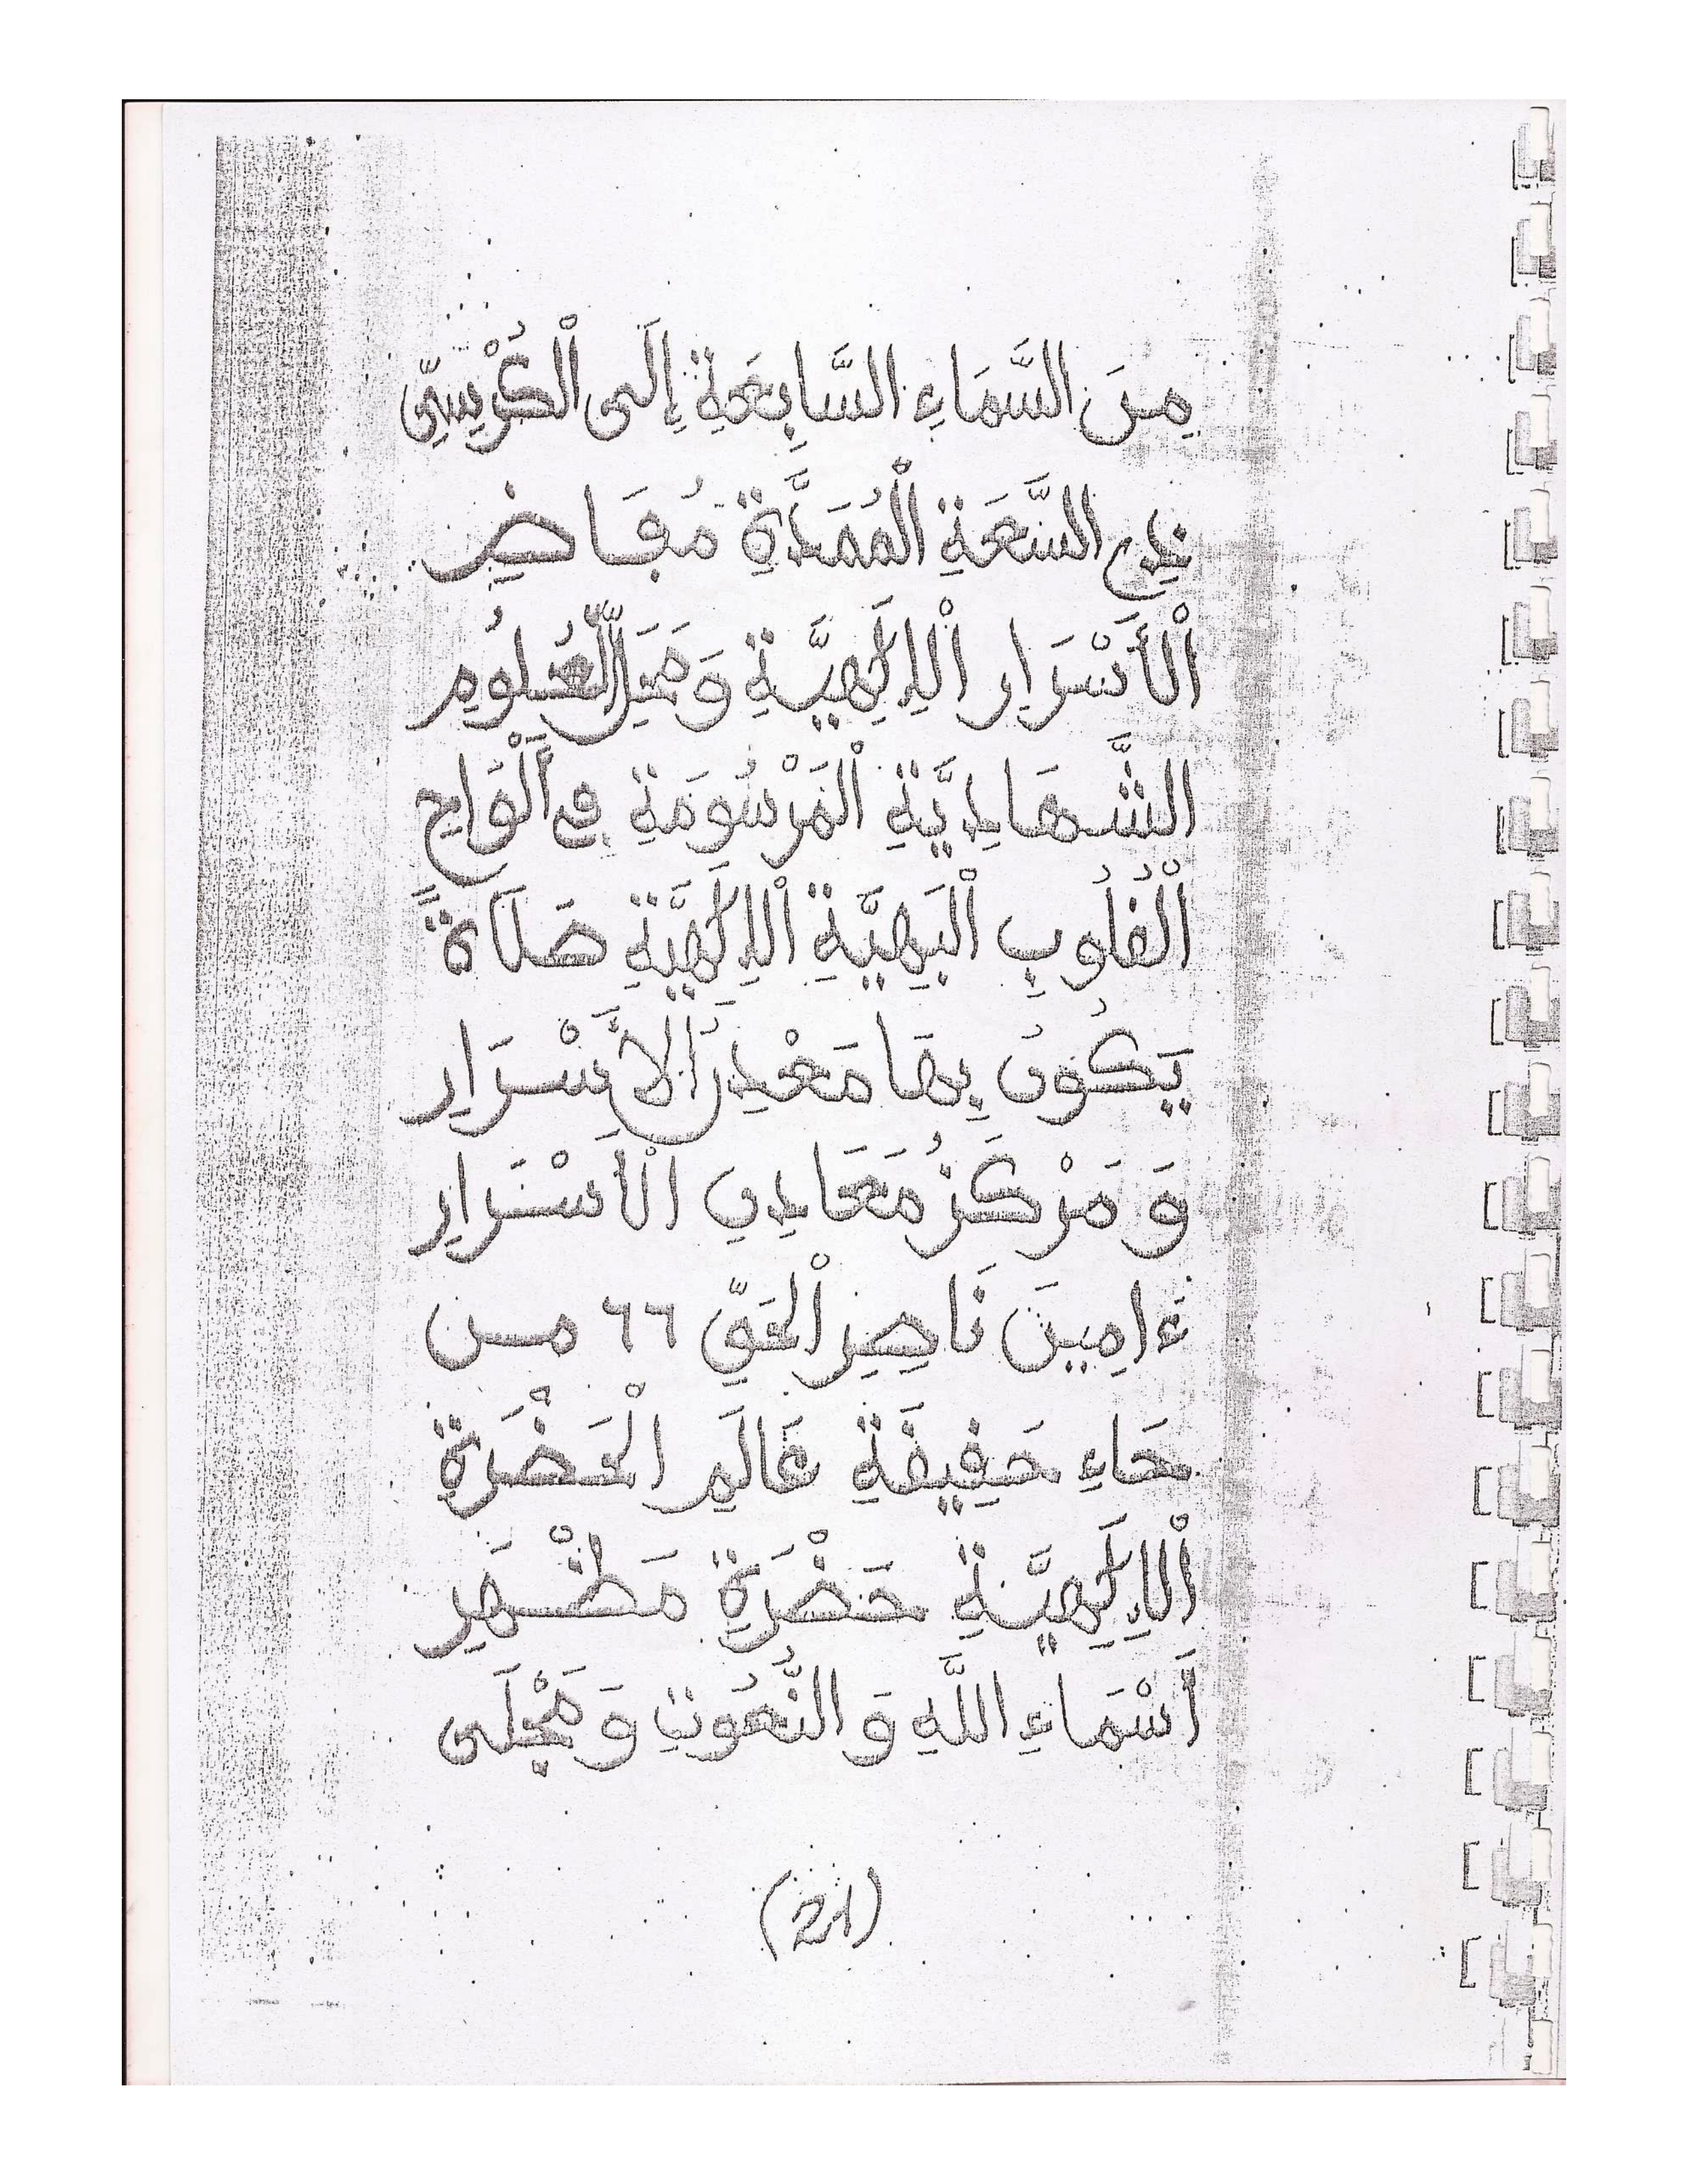 مِنَ السَّمَاءِ السَّابِعَةِ إِلَى الْكُرْسِيِّ
ذِي السَّعَةِ الْمُمَدَّةِ مُفَاضِ
الْأَسْرَارِ الْإِلَٰهِيَّةِ وَمَحَلِّ الْعُلُومِ
الشَّهَادِيَّةِ الْمَرْسُومَةِ فِي أَلْوَاحِ
الْقُلُوبِ الْبَهِيَّةِ الْإِلَٰهِيَّةِ صَلَاةً
يَكُونُ بِهَا مَعْدِنَ الْأَسْرَارِ
وَمَرْكَزُ مَعَادِنِ الْأَسْرَارِ
ءَامِينَ نَاصِرِ الْحَقِّ ٦٦ مِن
حَاءِ حَقِيقَةِ عَالَمِ الْحَضْرَةِ
الْإِلَٰهِيَّةِ حَضْرَةِ مَظْهَرِ
أَسْمَاءِ اللَّهِ وَالنُّعُوتِ وَمَجْلَى
(21)